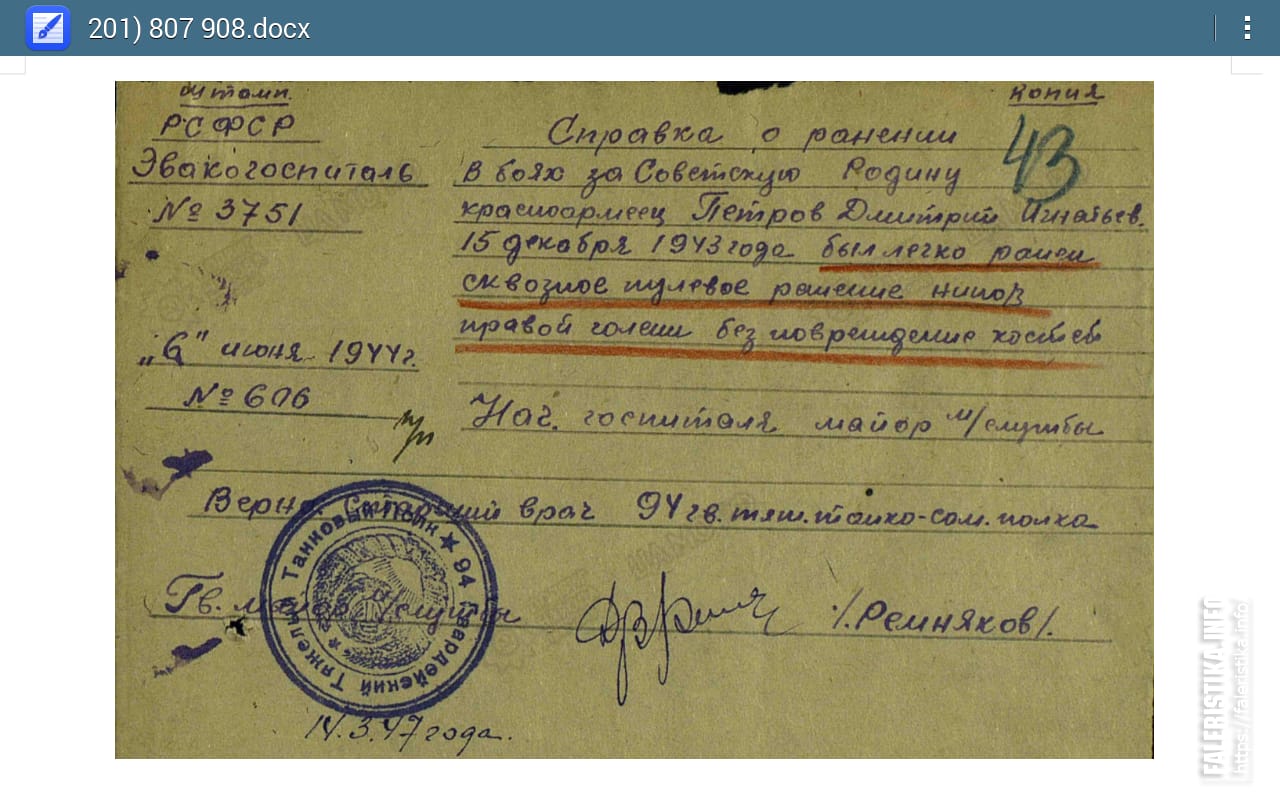 201) 807 908.docx
Штамп.
РСФСР
Эвакогоспиталь
№ 3751
"6" июня 1944г.
№ 606
копия
43
Справка о ранении
В боях за Советскую Родину
красноармеец Петров Дмитрий Игнатьев.
15 декабря 1943 года был легко ранен
сквозное пулевое ранение
правой голени без повреждение костей
Нач. госпиталя майор м/службы
Верно: Старший врач 94 гв. тяж. танко-сам. полка
Гв. майор м/службы /Ремняков/.
★ 94 Гвардейский Тяжелый Танковый Полк ★
14.3.47 года.
FALERISTIKA.INFO
https://faleristika.info/